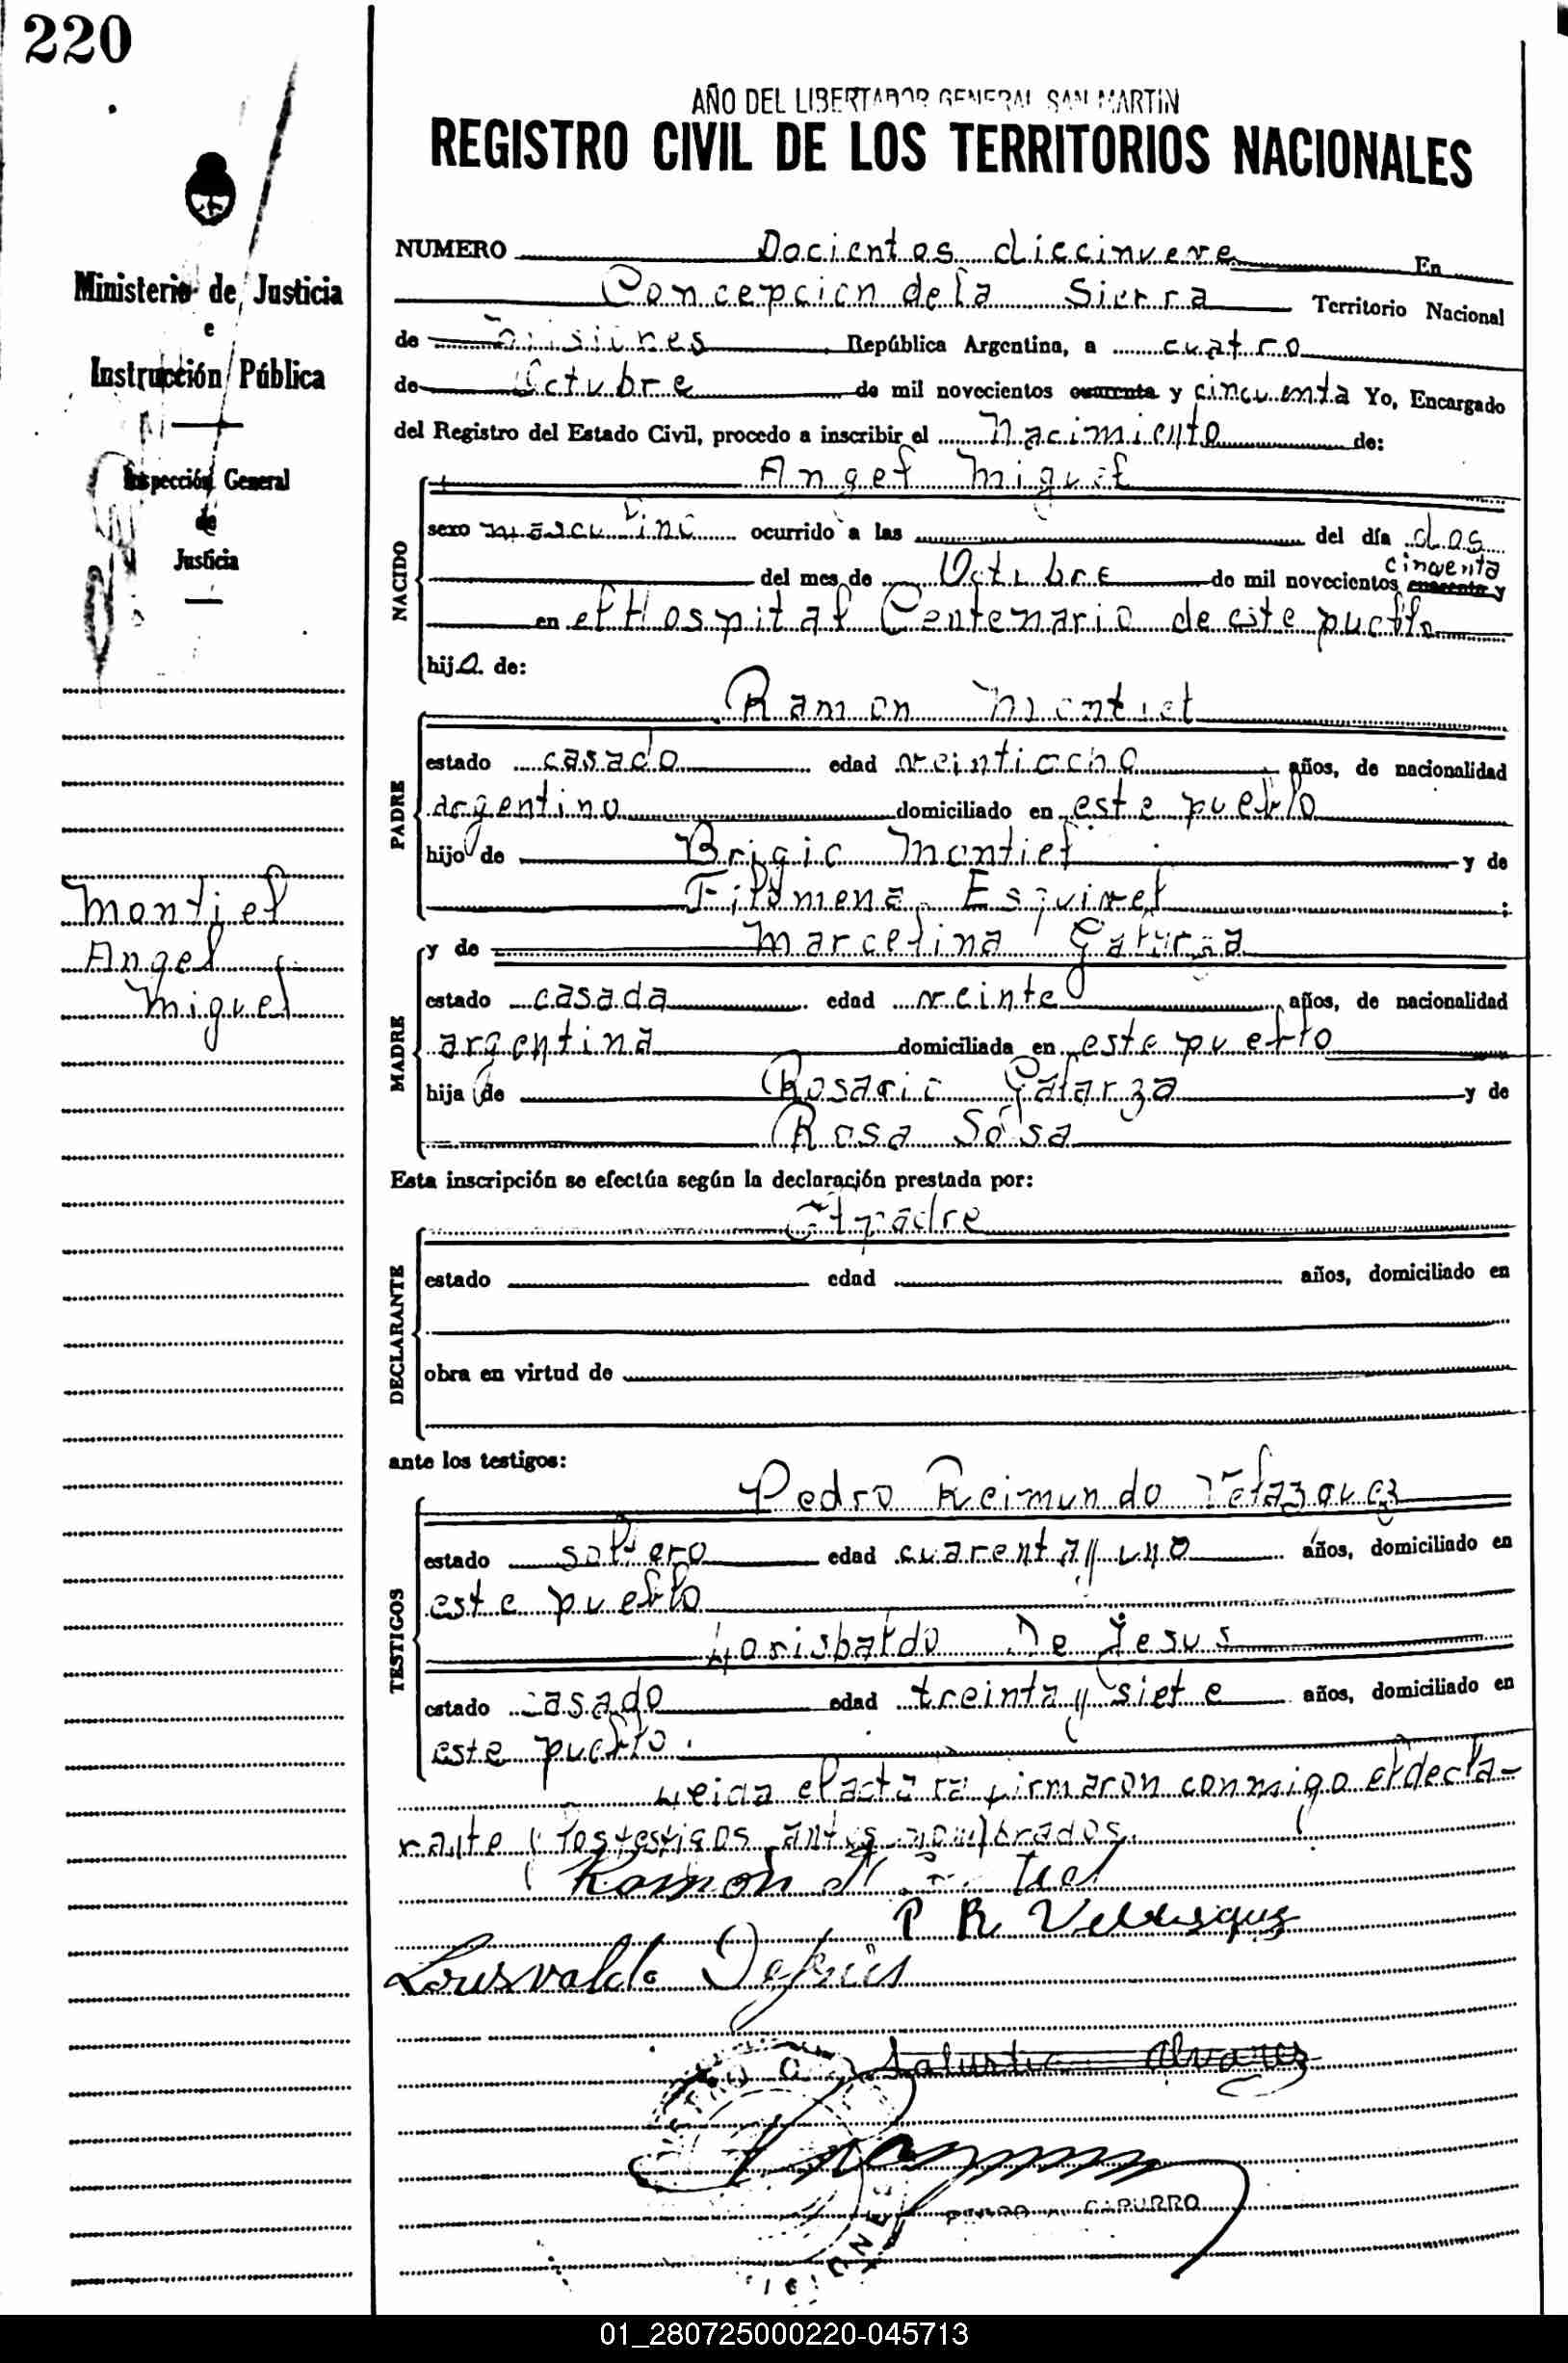 220
AÑO DEL LIBERTADOR GENERAL SAN MARTIN
REGISTRO CIVIL DE LOS TERRITORIOS NACIONALES
Ministerio de Justicia
e
Instrucción Pública
Inspección General
de
Justicia
Montiel
Angel
Miguel
NUMERO Docientos diecinueve En
Concepcion de la Sierra Territorio Nacional
de Misiones República Argentina, a cuatro
de Octubre de mil novecientos cuarenta y cincuenta Yo, Encargado
del Registro del Estado Civil, procedo a inscribir el nacimiento de:
NACIDO
Angel Miguel
sexo masculino ocurrido a las del día dos
cincuenta
del mes de Octubre de mil novecientos cuarenta y
en el Hospital Centenario de este pueblo
hijo de:
PADRE
Ramon Montiel
estado casado edad veintiocho años, de nacionalidad
argentino domiciliado en este pueblo
hijo de Brigio Montiel y de
Filomena Esquivel ;
MADRE
y de Marcelina Galarza
estado casada edad veinte años, de nacionalidad
argentina domiciliada en este pueblo
hija de Rosario Galarza y de
Rosa Sosa
Esta inscripción se efectúa según la declaración prestada por:
DECLARANTE
El padre
estado edad años, domiciliado en
obra en virtud de
ante los testigos:
TESTIGOS
Pedro Reimundo Velazquez
estado soltero edad cuarenta y uno años, domiciliado en
este pueblo
Lorisbaldo De Jesus
estado casado edad treinta y siete años, domiciliado en
este pueblo.
Leida el acta la firmaron conmigo el decla-
rante y los testigos antes nombrados.
Ramón Montiel
P R Velasquez
Loursvaldo Dejesús
Salustio Alvarez
CAPURRO
01_280725000220-045713